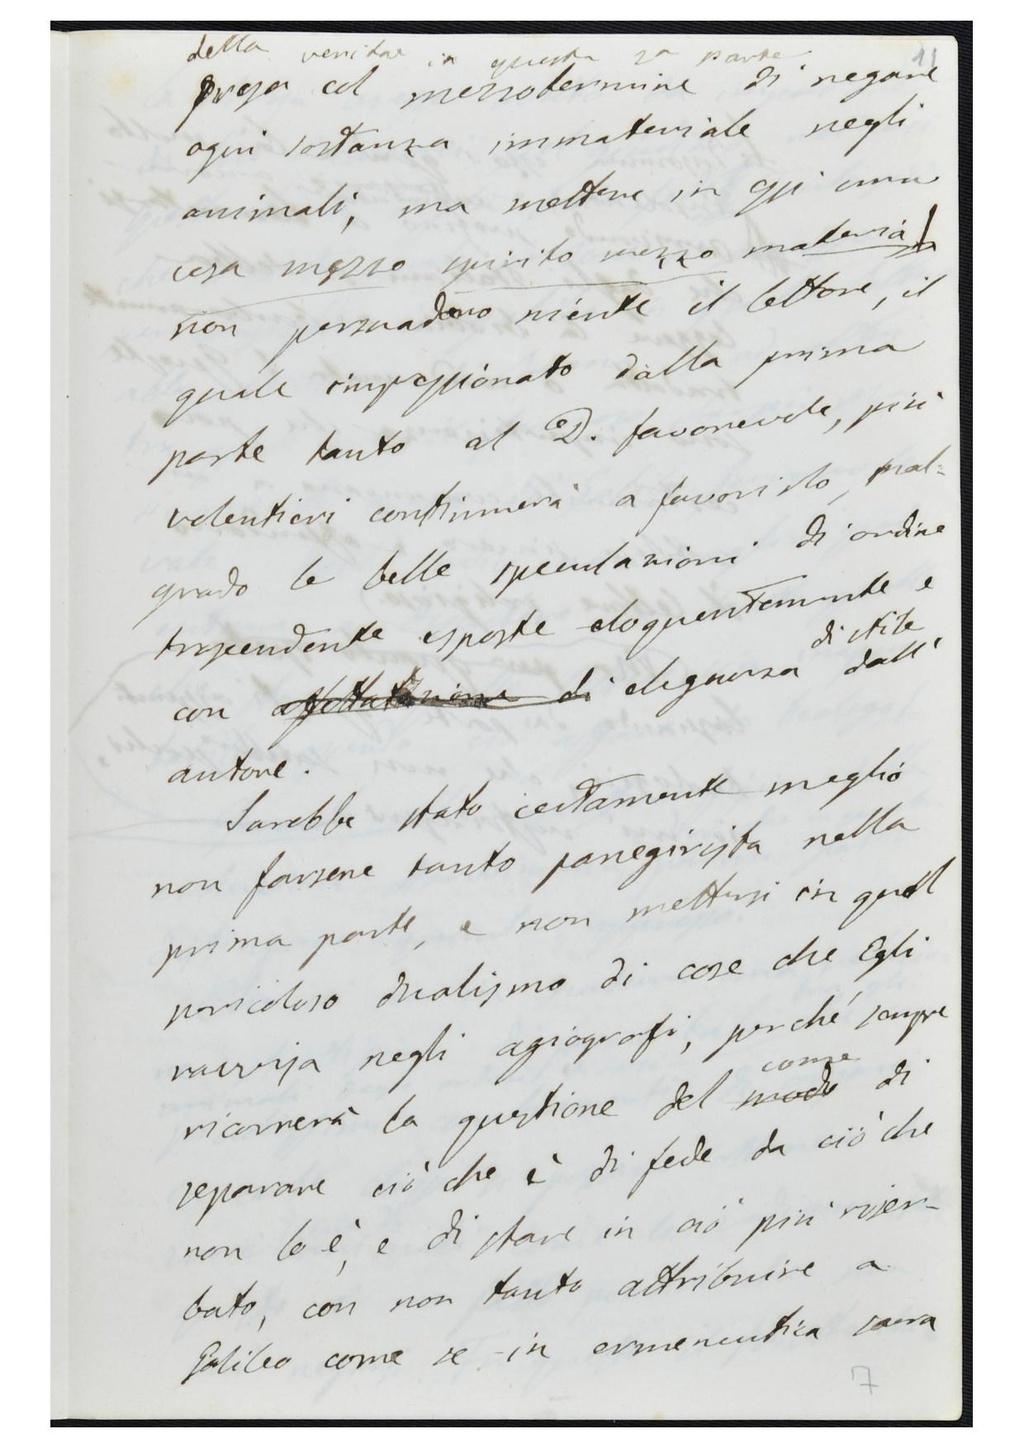 della verità in questa 2a parte
11
presa col mezzotermine di negare
ogni sostanza immateriale negli
animali, ma mettere in essi una
cosa mezzo spirito mezzo materia
non persuadono niente il lettore, il
quale impressionato dalla prima
parte tanto al D. favorevole, più
volentieri continuerà a favorirlo, mal=
grado le belle speculazioni di ordine
trascendente esposte eloquentemente e
con affettazione di eleganza di stile dall'
autore.
Sarebbe stato certamente meglio
non farsene tanto panegirista nella
prima parte, e non mettersi in quel
pericoloso dualismo di cose che Egli
ravvisa negli agiografi, perché sempre
ricorrerà la questione del modo come di
separare ciò che è di fede da ciò che
non lo è, e di stare in ciò più riser-
bato, con non tanto attribuire a
Galileo come se in ermeneutica sacra
7